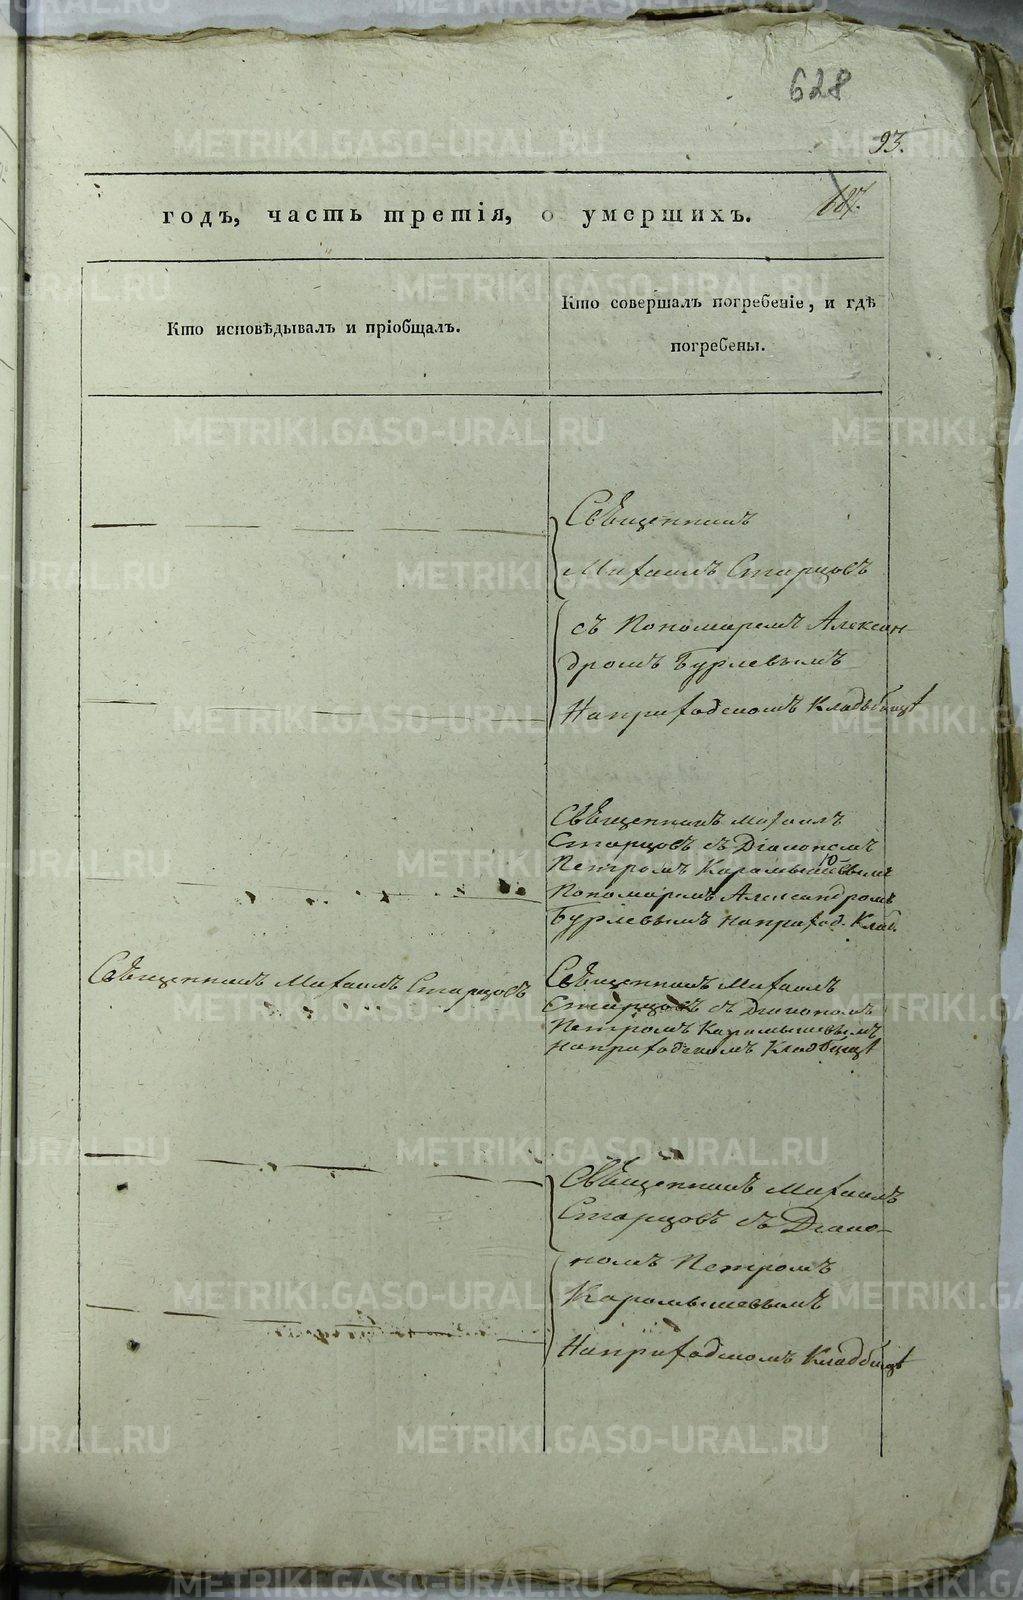 628
93.
187.
годъ, часть третія, о умершихъ.
Кто исповѣдывалъ и пріобщалъ.
Кто совершалъ погребеніе, и гдѣ
погребены.
Священникъ
Михаилъ Старцовъ
съ Пономаремъ Алексан-
дромъ Бурлевымъ
На приходскомъ Кладьбищѣ
Священникъ Михаилъ
Старцовъ съ Діакономъ
Петромъ Карамышевымъ
Пономаремъ Александромъ
Бурлевымъ на приход. Клад.
Священникъ Михаилъ Старцовъ
Священникъ Михаилъ
Старцовъ съ Діакономъ
Петромъ Карамышевымъ
на приходскомъ Кладбищѣ
Священникъ Михаилъ
Старцовъ съ Діако-
номъ Петромъ
Карамышевымъ
На приходскомъ Кладбищѣ
METRIKI.GASO-URAL.RU